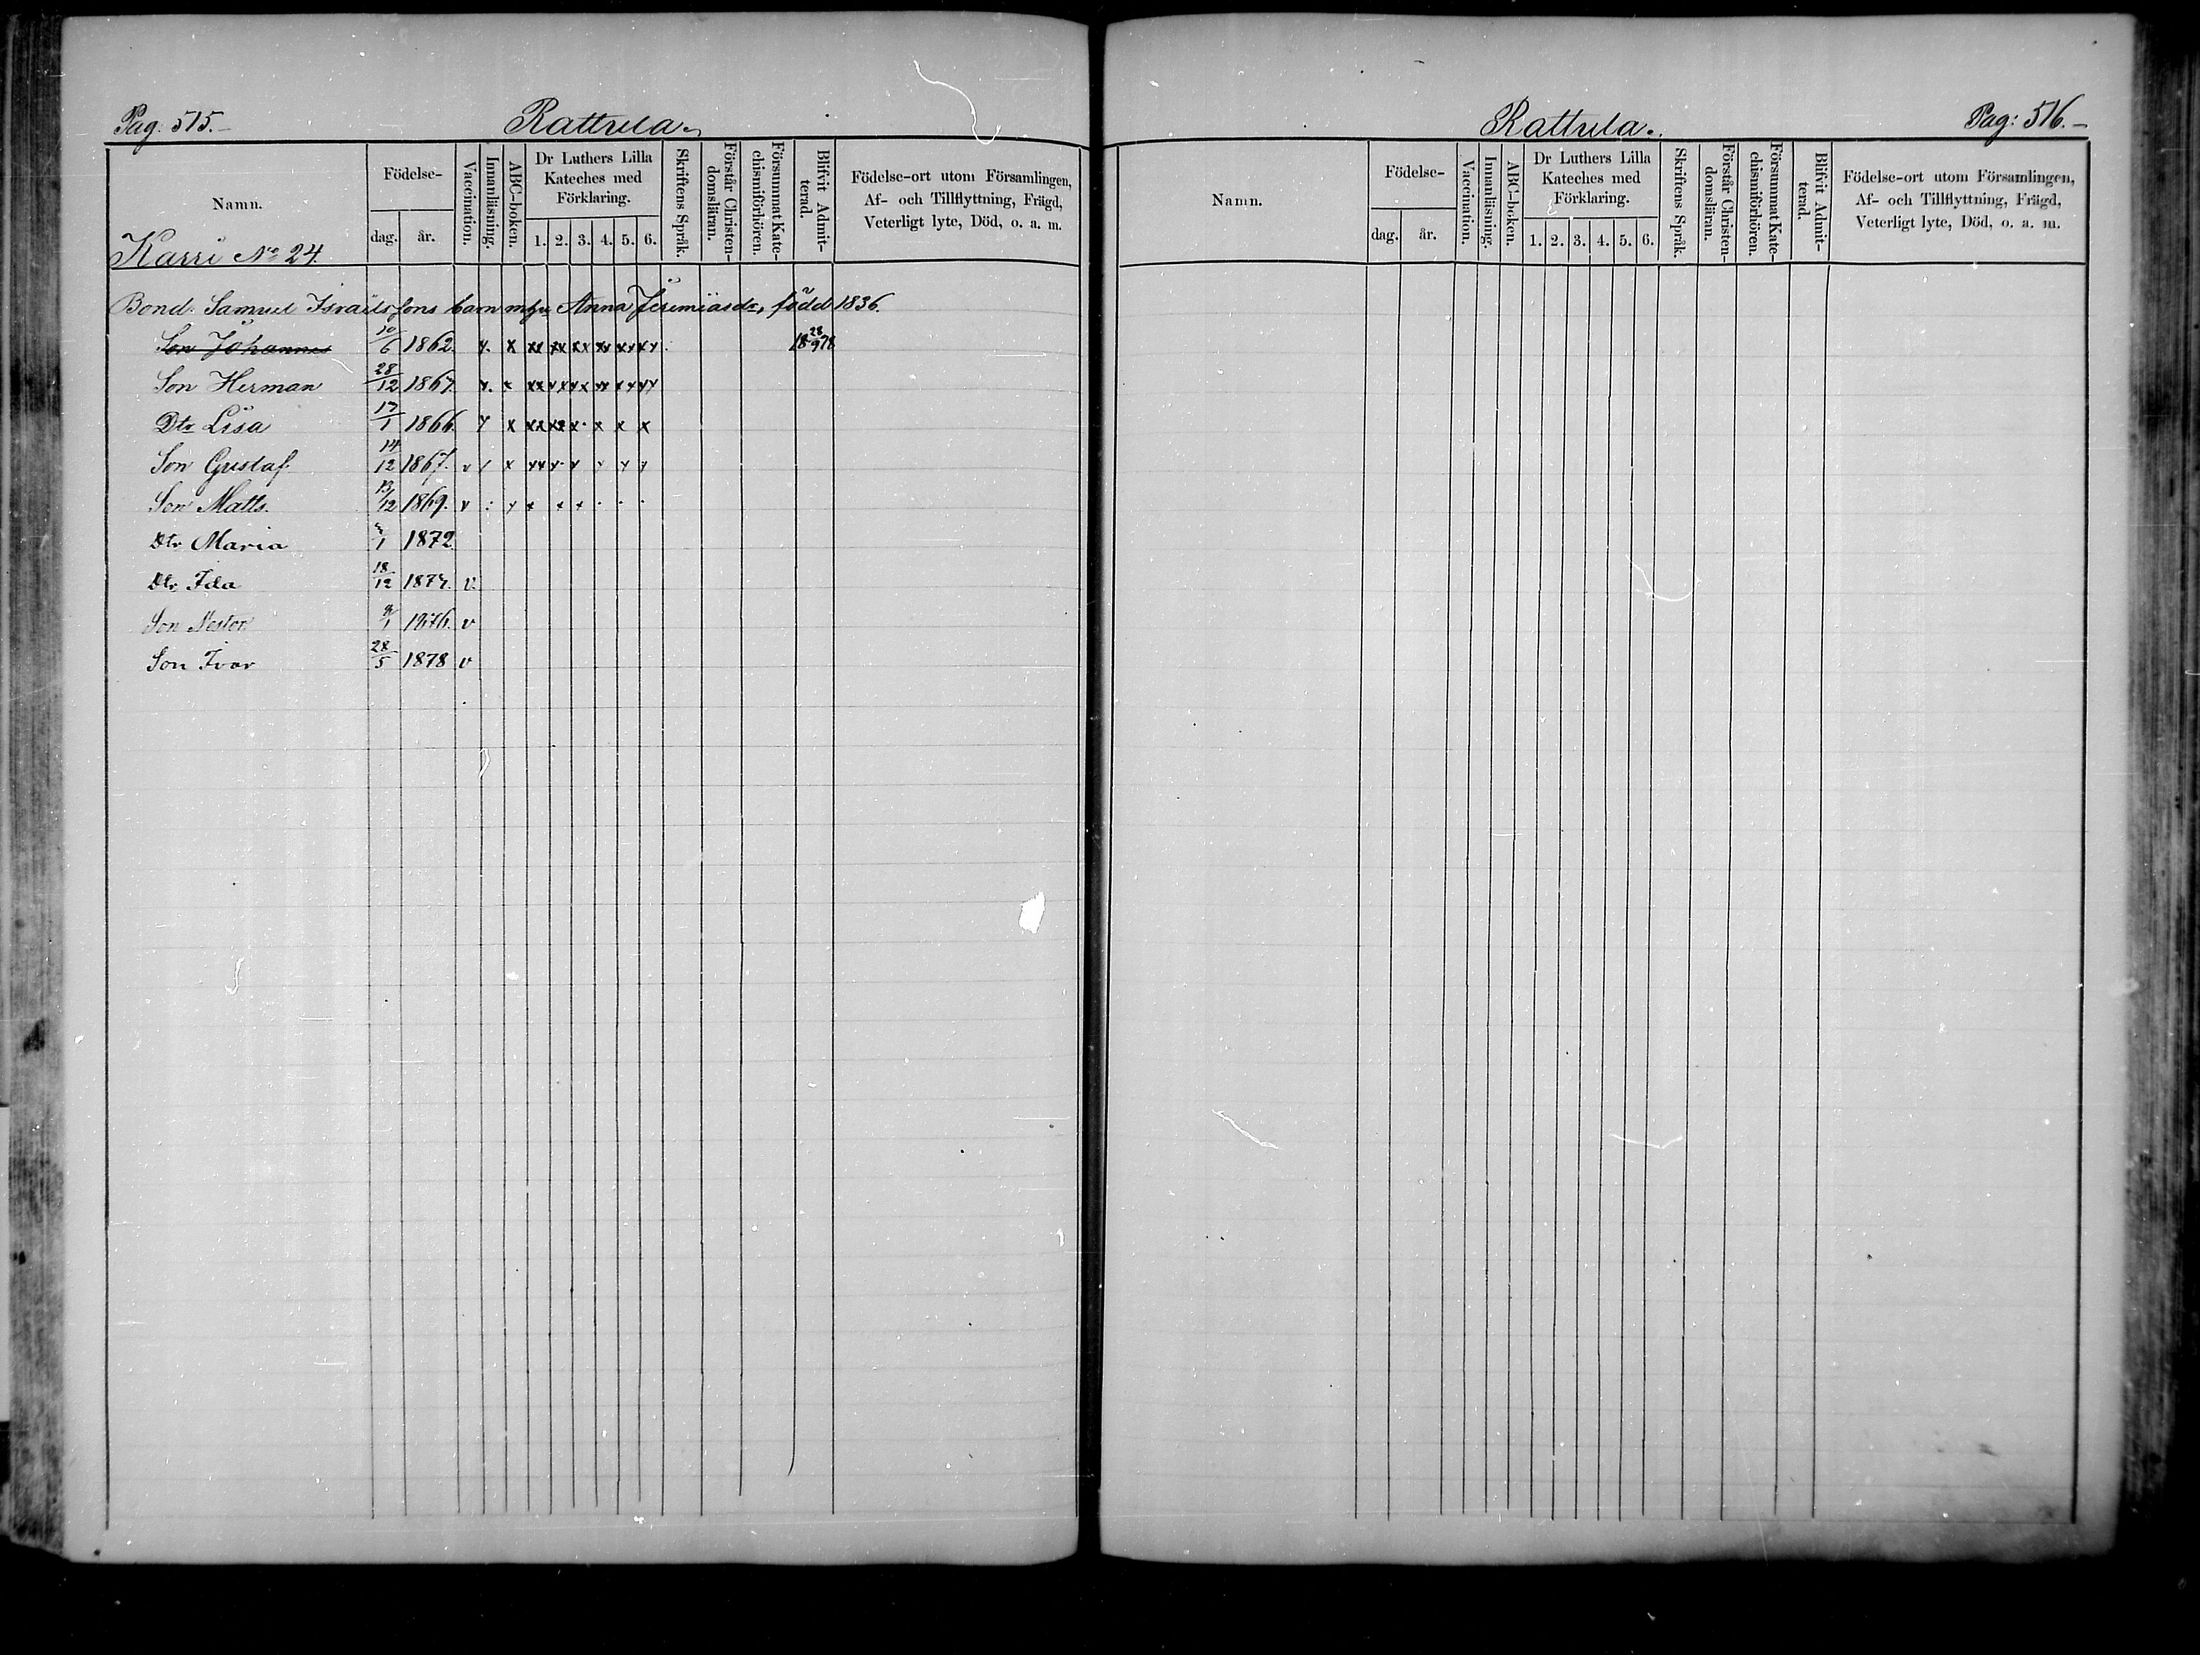 Pag. 515.
Rattula.
Namn.
Födelse-
dag.
år.
Vaccination.
Innanläsning.
ABC-boken.
Dr Luthers Lilla
Kateches med
Förklaring.
1. 2. 3. 4. 5. 6.
Skriftens Språk.
Förstår Christen-
domsläran.
Försummat Kate-
chismiförhören.
Blifvit Admit-
terad.
Födelse-ort utom Församlingen,
Af- och Tillflyttning, Frägd,
Veterligt lyte, Död, o. a. m.
Karri No 24.
Bond. Samuel Israelssons barn m hu Anna Jeremiasdr, född 1836.
Son Johannes 10/6 1862. x. x xx xx xx xx xx xx 18 28/9 78
Son Herman 28/12 x. x xx xx xx xx xx xx
Dtr Lisa 17/1 1866
Son Gustaf 14/12 1867. v
Son Matts. 13/12 1869. v
Dtr Maria 1872
Dtr Ida 18/12 1874. v.
Son Nestor 9/1 1876. v
Son Ivar 28/5 1878 v
Rattula.
Pag: 516.
Namn.
Födelse-
dag.
år.
Vaccination.
Innanläsning.
ABC-boken.
Dr Luthers Lilla
Kateches med
Förklaring.
1. 2. 3. 4. 5. 6.
Skriftens Språk.
Förstår Christen-
domsläran.
Försummat Kate-
chismiförhören.
Blifvit Admit-
terad.
Födelse-ort utom Församlingen,
Af- och Tillflyttning, Frägd,
Veterligt lyte, Död, o. a. m.